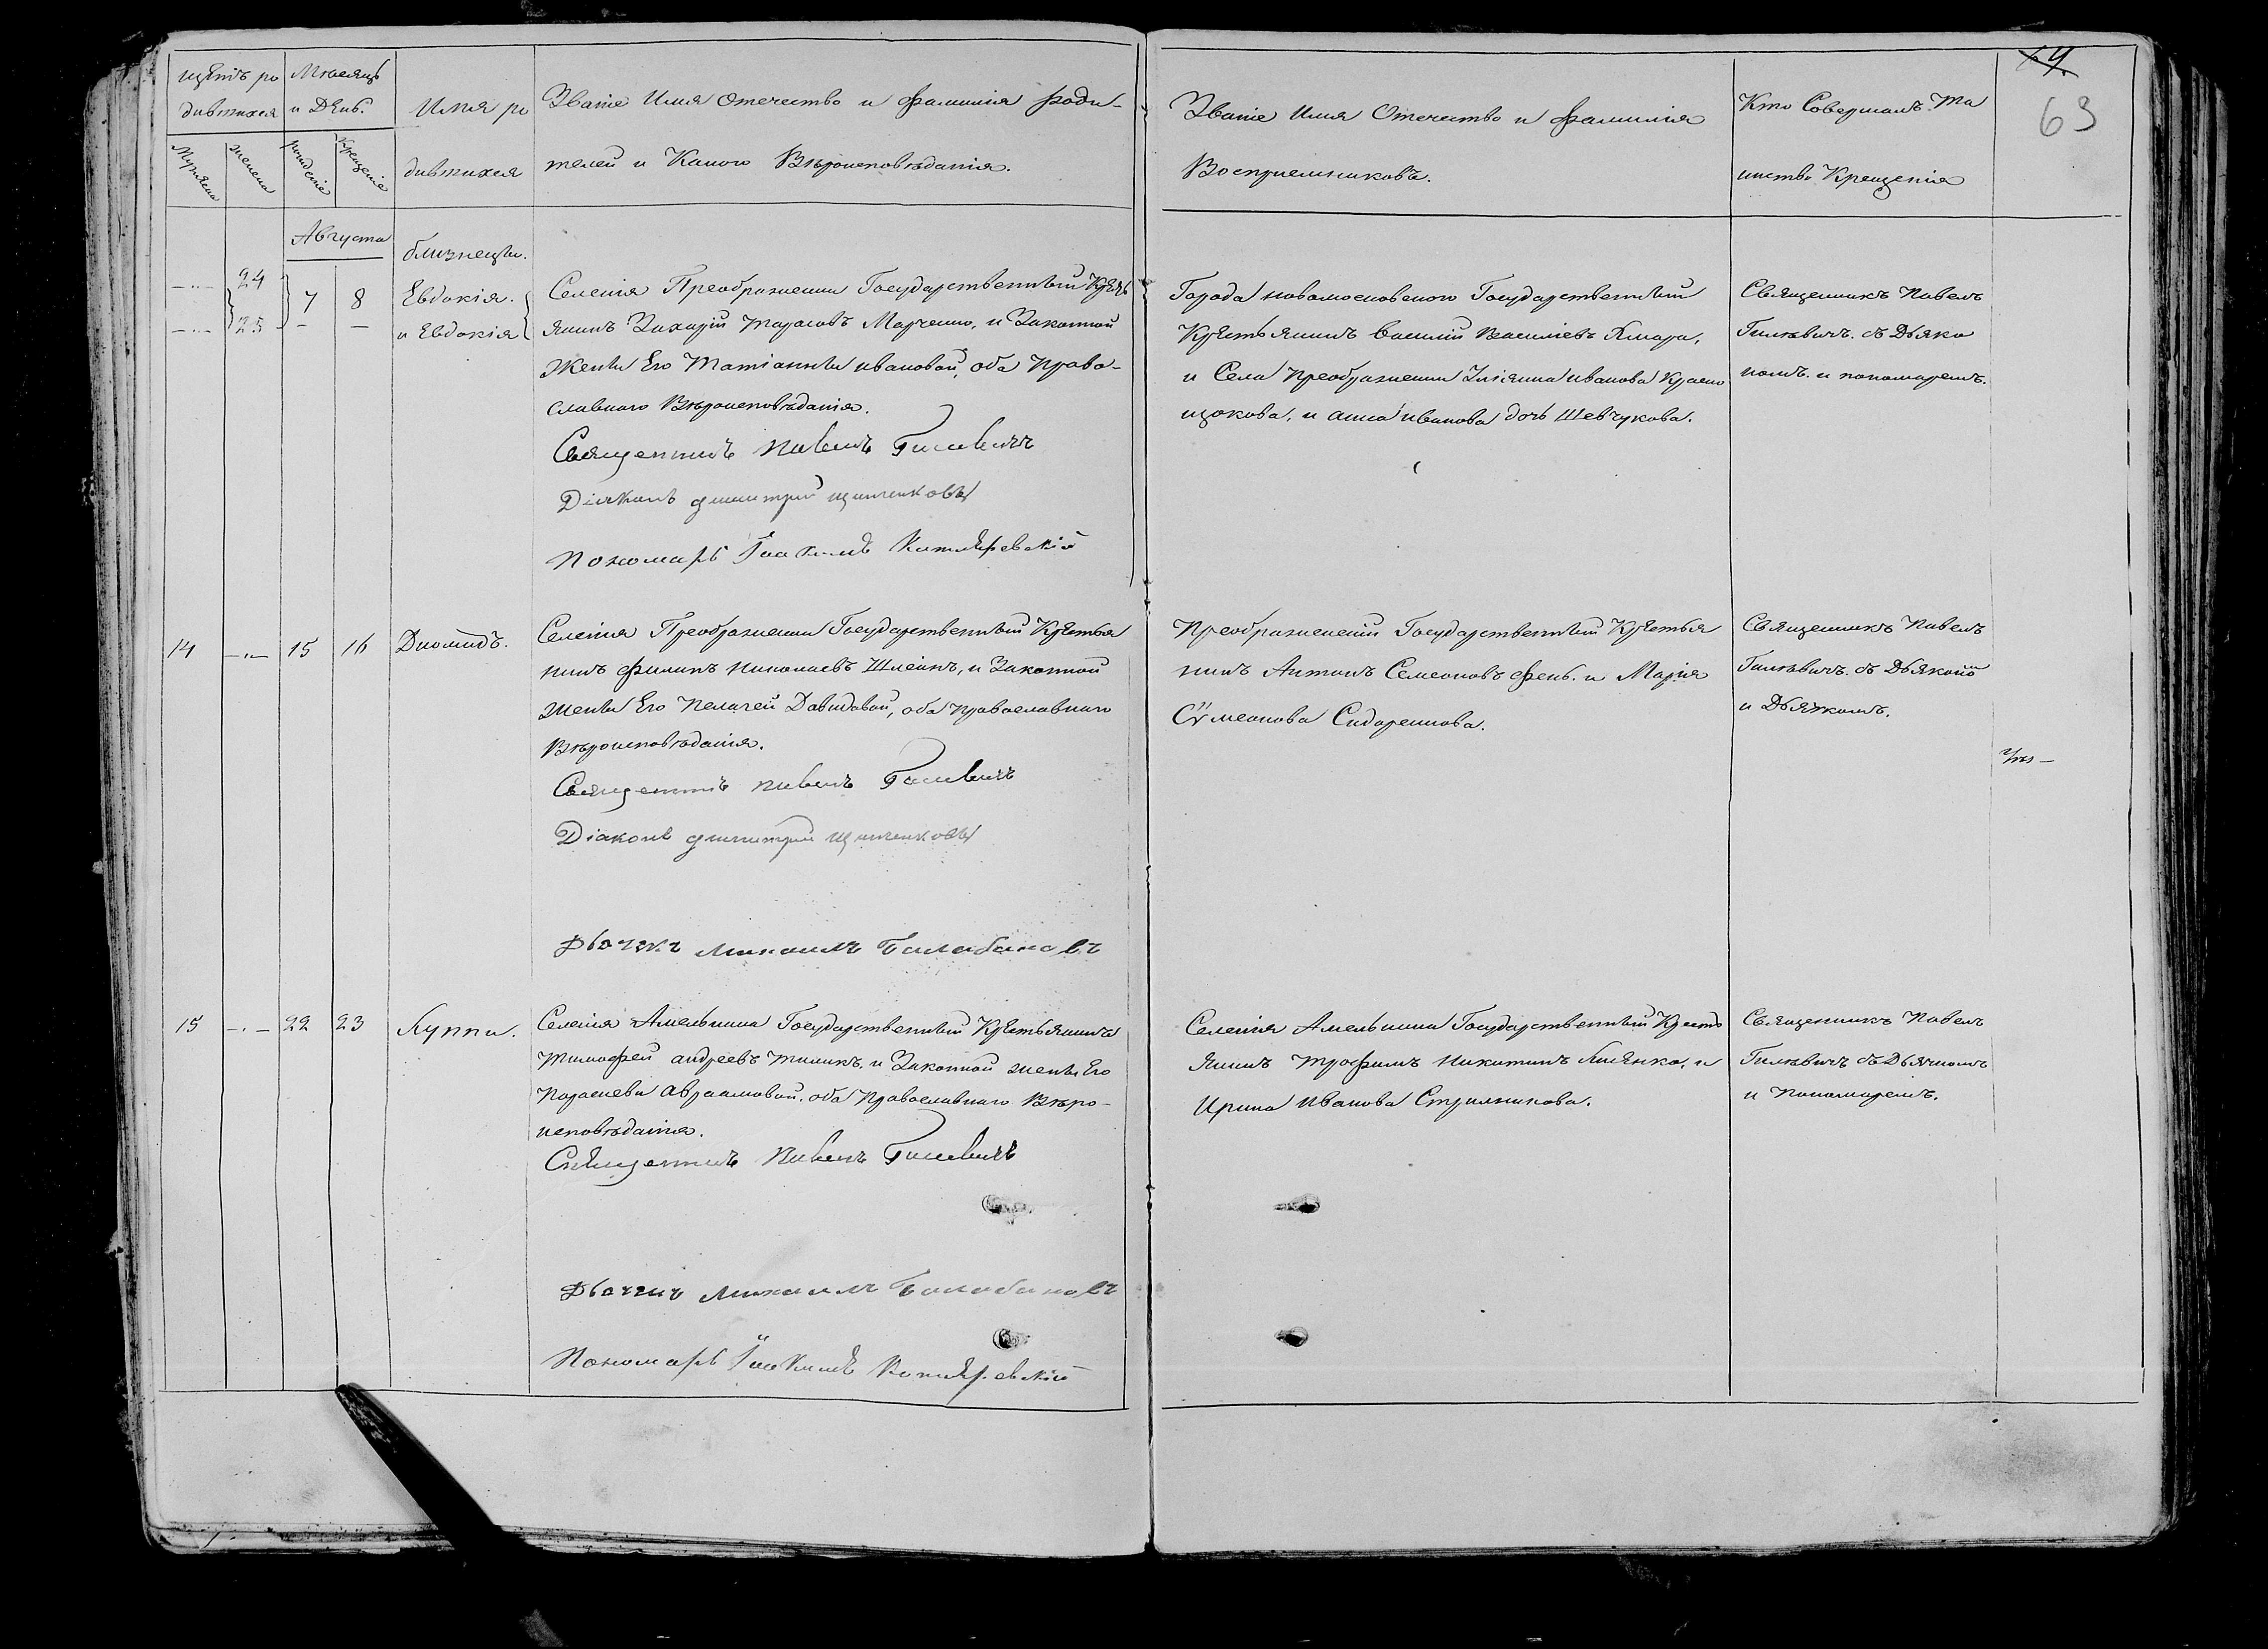 щетъ ро
дившихся
Мужеска
женска
Месяцъ
и День.
рождение
крещение
Имя ро
дившихся
Званіе Имя Отечество и фамилія роди-
телей и Какого Вѣроисповѣданія.
Званіе Имя Отечество и фамилія
Воспріемниковъ.
Кто Совершалъ Та
инство Крещенія
64.
63
Августа
24
25
7 8
близнецы.
Евдокія.
и Евдокія
Селенія Преображенки Государственный Кресть
янинъ Захарій Тарасовъ Марченко, и Законной
жены Его Татіанны Ивановой, оба Право-
славного Вѣроисповѣданія.
Священникъ Павелъ
Діяконъ Димитрій
Пономарь Іоакимъ Котляревскій
Города Новомосковского Государственный
Крестьянинъ Василій Василіевъ
и Села Преображенки Иванова
и Анна Иванова дочь Шевчукова.
Священникъ Павелъ
съ Дьяко
номъ. и пономаремъ.
14 15 16 Диомидъ.
Селенія Преображенки Государственный Крестья
нинъ Филипъ Николаевъ и Законной
жены Его Пелагеи Давидовой, оба Православного
Вѣроисповѣданія.
Священникъ Павелъ
Діаконъ Димитрій
Дьячекъ Михаилъ Балабановъ
Преображенки Государственный Крестья
нинъ Антонъ Семеоновъ и Марія
Сѵмеонова Сидоренкова.
Священникъ Павелъ
съ Дьякономъ
и Дьячкомъ.
15 22 23 Луппа.
Селенія Амельника Государственный Крестьянинъ
Тимофей Андреевъ и Законной жены Его
Параскевы Авраамовой, оба Православного Вѣро-
исповѣданія.
Священникъ Павелъ
Дьячекъ Михаилъ Балабановъ
Пономарь Іоакимъ Котляревскій
Селенія Амельника Государственный Кресть
янинъ Трофимъ Никитинъ и
Ирина Иванова Стрильникова.
Священникъ Павелъ
съ Дьячкомъ
и Пономаремъ.